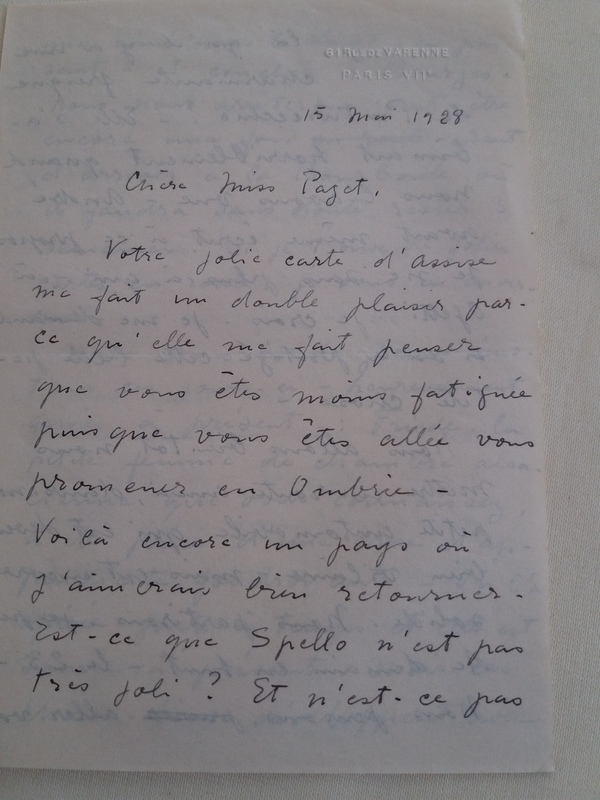 61 RUE DE VARENNE
PARIS VIIe
15 Mai 1928
Chère Miss Paget,
Votre jolie carte d'Assise
me fait un double plaisir par-
ce qu'elle me fait penser
que vous êtes moins fatiguée
puisque vous êtes allée vous
promener en Ombrie -
Voilà encore un pays où
j'aimerais bien retourner.
Est-ce que Spello n'est pas
très joli ? Et n'est-ce pas